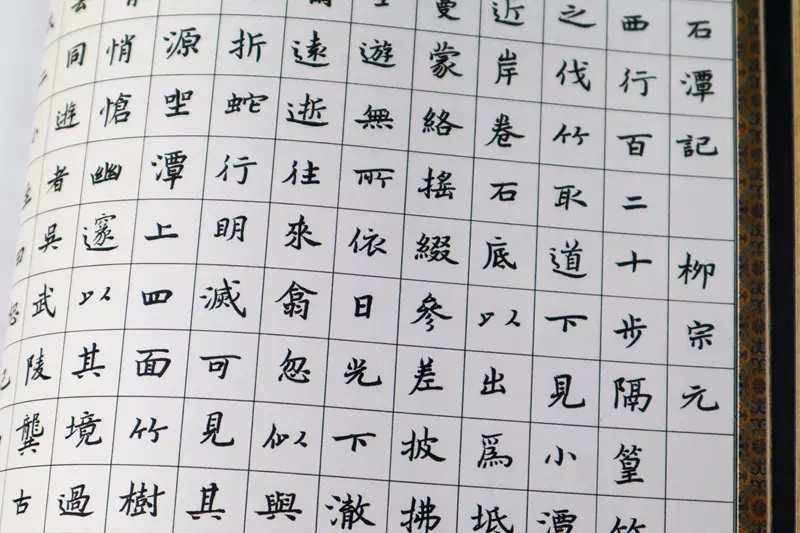 石潭記 柳宗元
西行百二十步隔篁竹
之伐竹取道下見小潭
近岸卷石底以出爲坻
蔓蒙絡搖綴參差披拂
遊無所依日光下澈
爾遠逝往來翕忽似與
折蛇行明滅可見其
源坐潭上四面竹樹
悄愴幽邃以其境過
同遊者吳武陵龔古
小生曰恕己